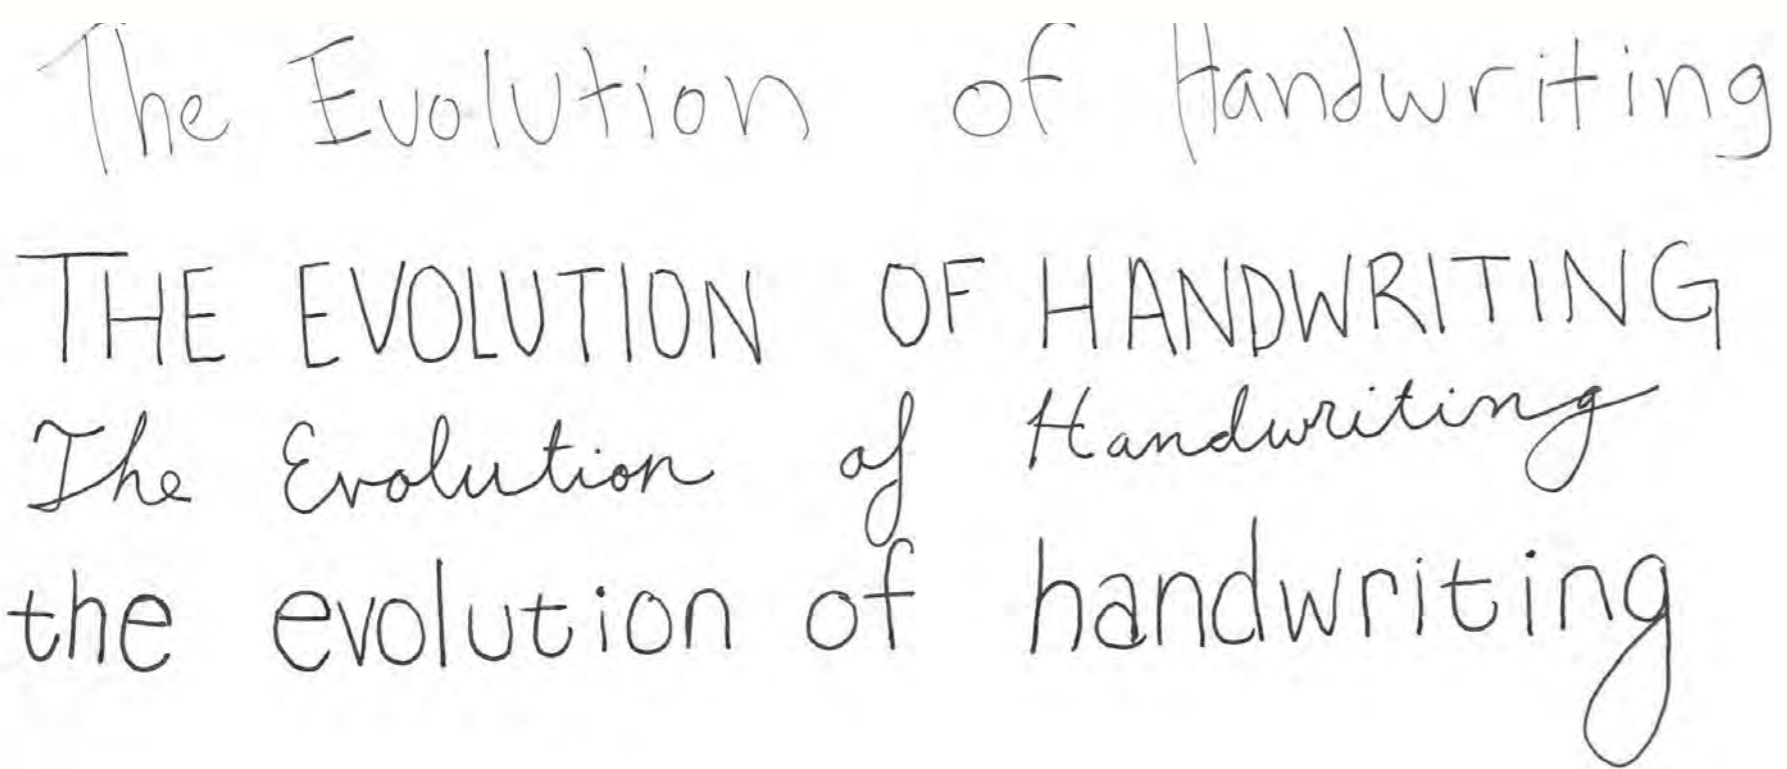 The Evolution of Handwriting
THE EVOLUTION OF HANDWRITING
The Evolution of Handwriting
the evolution of handwriting